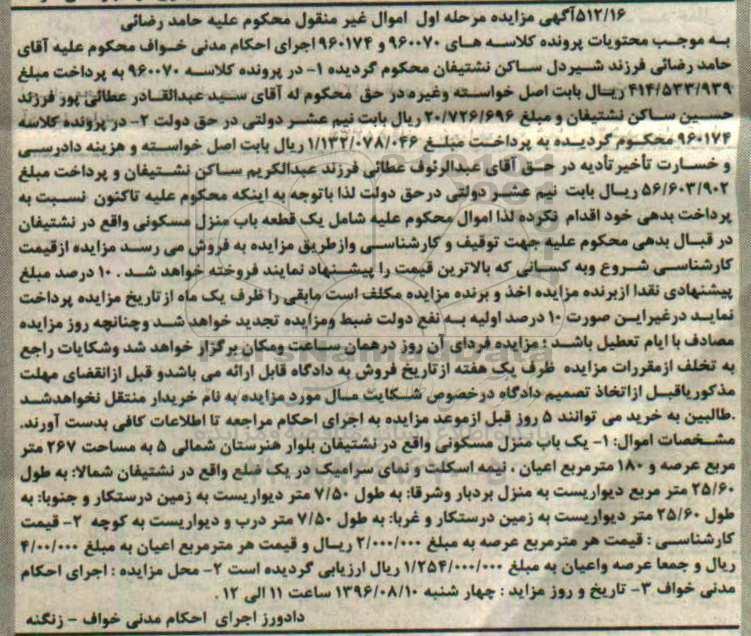 ۵۱۲/۱۶آگهی مزایده مرحله اول اموال غیر منقول محکوم علیه حامد رضائی
به موجب محتویات پرونده کلاسه های ۹۶۰۰۷۰ و ۹۶۰۱۷۴ اجرای احکام مدنی خواف محکوم علیه آقای
حامد رضائی فرزند شیردل ساکن نشتیفان محکوم گردیده ۱- در پرونده کلاسه ۹۶۰۰۷۰ به پرداخت مبلغ
۴۱۴/۵۳۳/۹۳۹ ریال بابت اصل خواسته وغیره در حق محکوم له آقای سید عبدالقادر عطائی پور فرزند
حسین ساکن نشتیفان و مبلغ ۲۰/۷۲۶/۶۹۶ ریال بابت نیم عشر دولتی در حق دولت ۲- در پرونده کلاسه
۹۶۰۱۷۴ محکوم گردیده به پرداخت مبلغ ۱/۱۳۲/۰۷۸/۰۴۶ ریال بابت اصل خواسته و هزینه دادرسی
و خسارت تأخیرتأدیه در حق آقای عبدالرئوف عطائی فرزند عبدالکریم ساکن نشتیفان و پرداخت مبلغ
۵۶/۶۰۳/۹۰۲ ریال بابت نیم عشر دولتی درحق دولت لذا باتوجه به اینکه محکوم علیه تاکنون نسبت به
پرداخت بدهی خود اقدام نکرده لذا اموال محکوم علیه شامل یک قطعه باب منزل مسکونی واقع در نشتیفان
در قبال بدهی محکوم علیه جهت توقیف و کارشناسی وازطریق مزایده به فروش می رسد مزایده ازقیمت
کارشناسی شروع وبه کسانی که بالاترین قیمت را پیشنهاد نمایند فروخته خواهد شد . ۱۰ درصد مبلغ
پیشنهادی نقدا ازبرنده مزایده اخذ و برنده مزایده مکلف است مابقی را ظرف یک ماه ازتاریخ مزایده پرداخت
نماید درغیراین صورت ۱۰ درصد اولیه به نفع دولت ضبط ومزایده تجدید خواهد شد وچنانچه روز مزایده
مصادف با ایام تعطیل باشد ؛ مزایده فردای آن روز درهمان ساعت ومکان برگزار خواهد شد وشکایات راجع
به تخلف ازمقررات مزایده ظرف یک هفته ازتاریخ فروش به دادگاه قابل ارائه می باشدو قبل ازانقضای مهلت
مذکوریاقبل ازاتخاذ تصمیم دادگاه درخصوص شکایت مال مورد مزایده به نام خریدار منتقل نخواهدشد
.طالبین به خرید می توانند ۵ روز قبل ازموعد مزایده به اجرای احکام مراجعه تا اطلاعات کافی بدست آورند.
مشخصات اموال: ۱- یک باب منزل مسکونی واقع در نشتیفان بلوار هنرستان شمالی ۵ به مساحت ۲۶۷ متر
مربع عرصه و ۱۸۰ مترمربع اعیان ، نیمه اسکلت و نمای سرامیک در یک ضلع واقع در نشتیفان شمالا: به طول
۲۵/۶۰ متر مربع دیواریست به منزل بردبار وشرقا: به طول ۷/۵۰ متر دیواریست به زمین درستکار و جنوبا: به
طول ۲۵/۶۰ متر دیواریست به زمین درستکار و غربا: به طول ۷/۵۰ متر درب و دیواریست به کوچه ۲- قیمت
کارشناسی : قیمت هر مترمربع عرصه به مبلغ ۲/۰۰۰/۰۰۰ ریال و قیمت هر مترمربع اعیان به مبلغ ۴/۰۰/۰۰۰
ریال و جمعا عرصه واعیان به مبلغ ۱/۲۵۴/۰۰۰/۰۰۰ ریال ارزیابی گردیده است ۲- محل مزایده : اجرای احکام
مدنی خواف ۳- تاریخ و روز مزاید : چهار شنبه ۱۳۹۶/۰۸/۱۰ ساعت ۱۱ الی ۱۲ .
دادورز اجرای احکام مدنی خواف - زنگنه